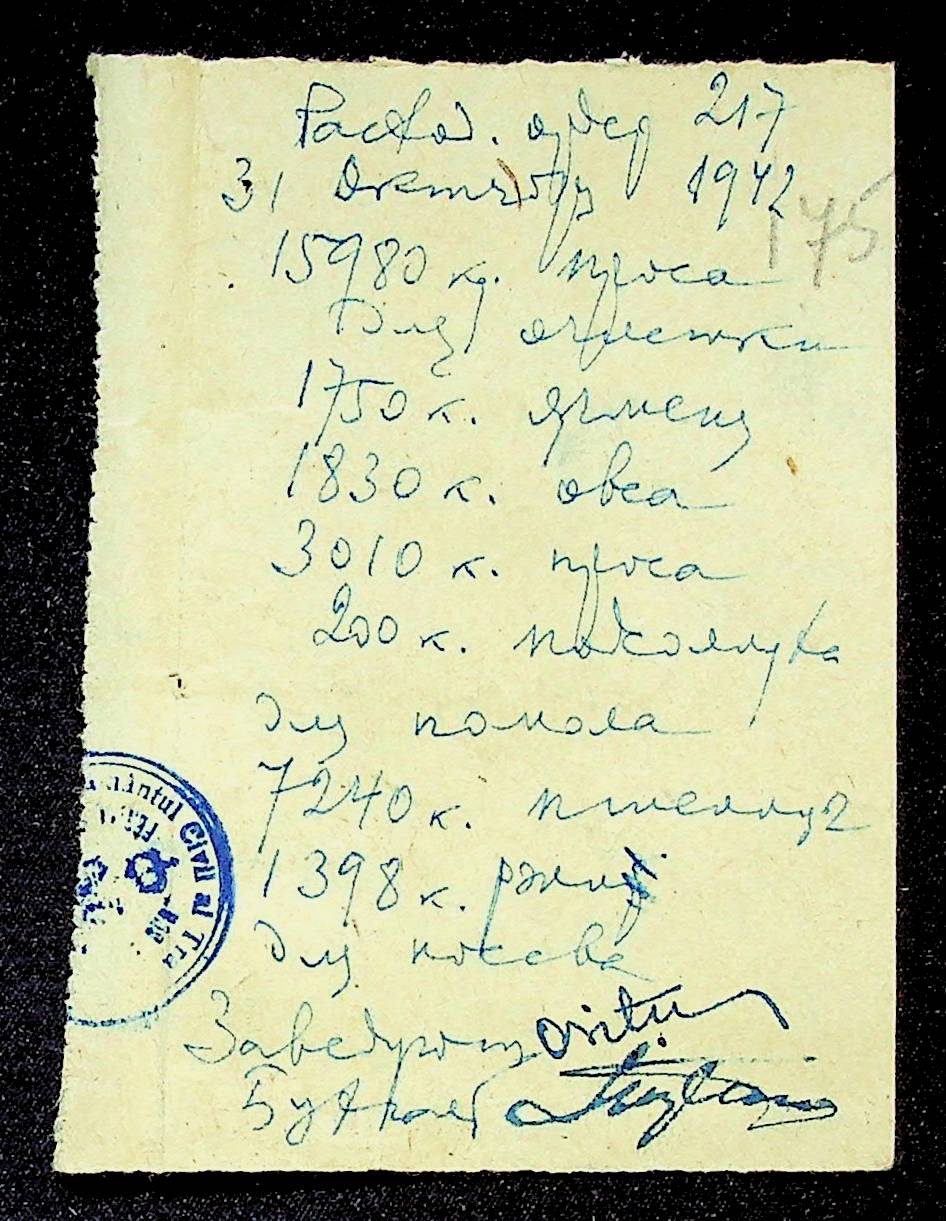 Расход. ордер 217
31 Октября 1942
175
15980 кг. проса
Для очистки
1750 к. ячменя
1830 к. овса
3010 к. проса
200 к. подсолнуха
для помола
7240 к. пшеницы
1398 к. ржи
для посева
Заведующ
Бухгалт
ântul Civil al Tra